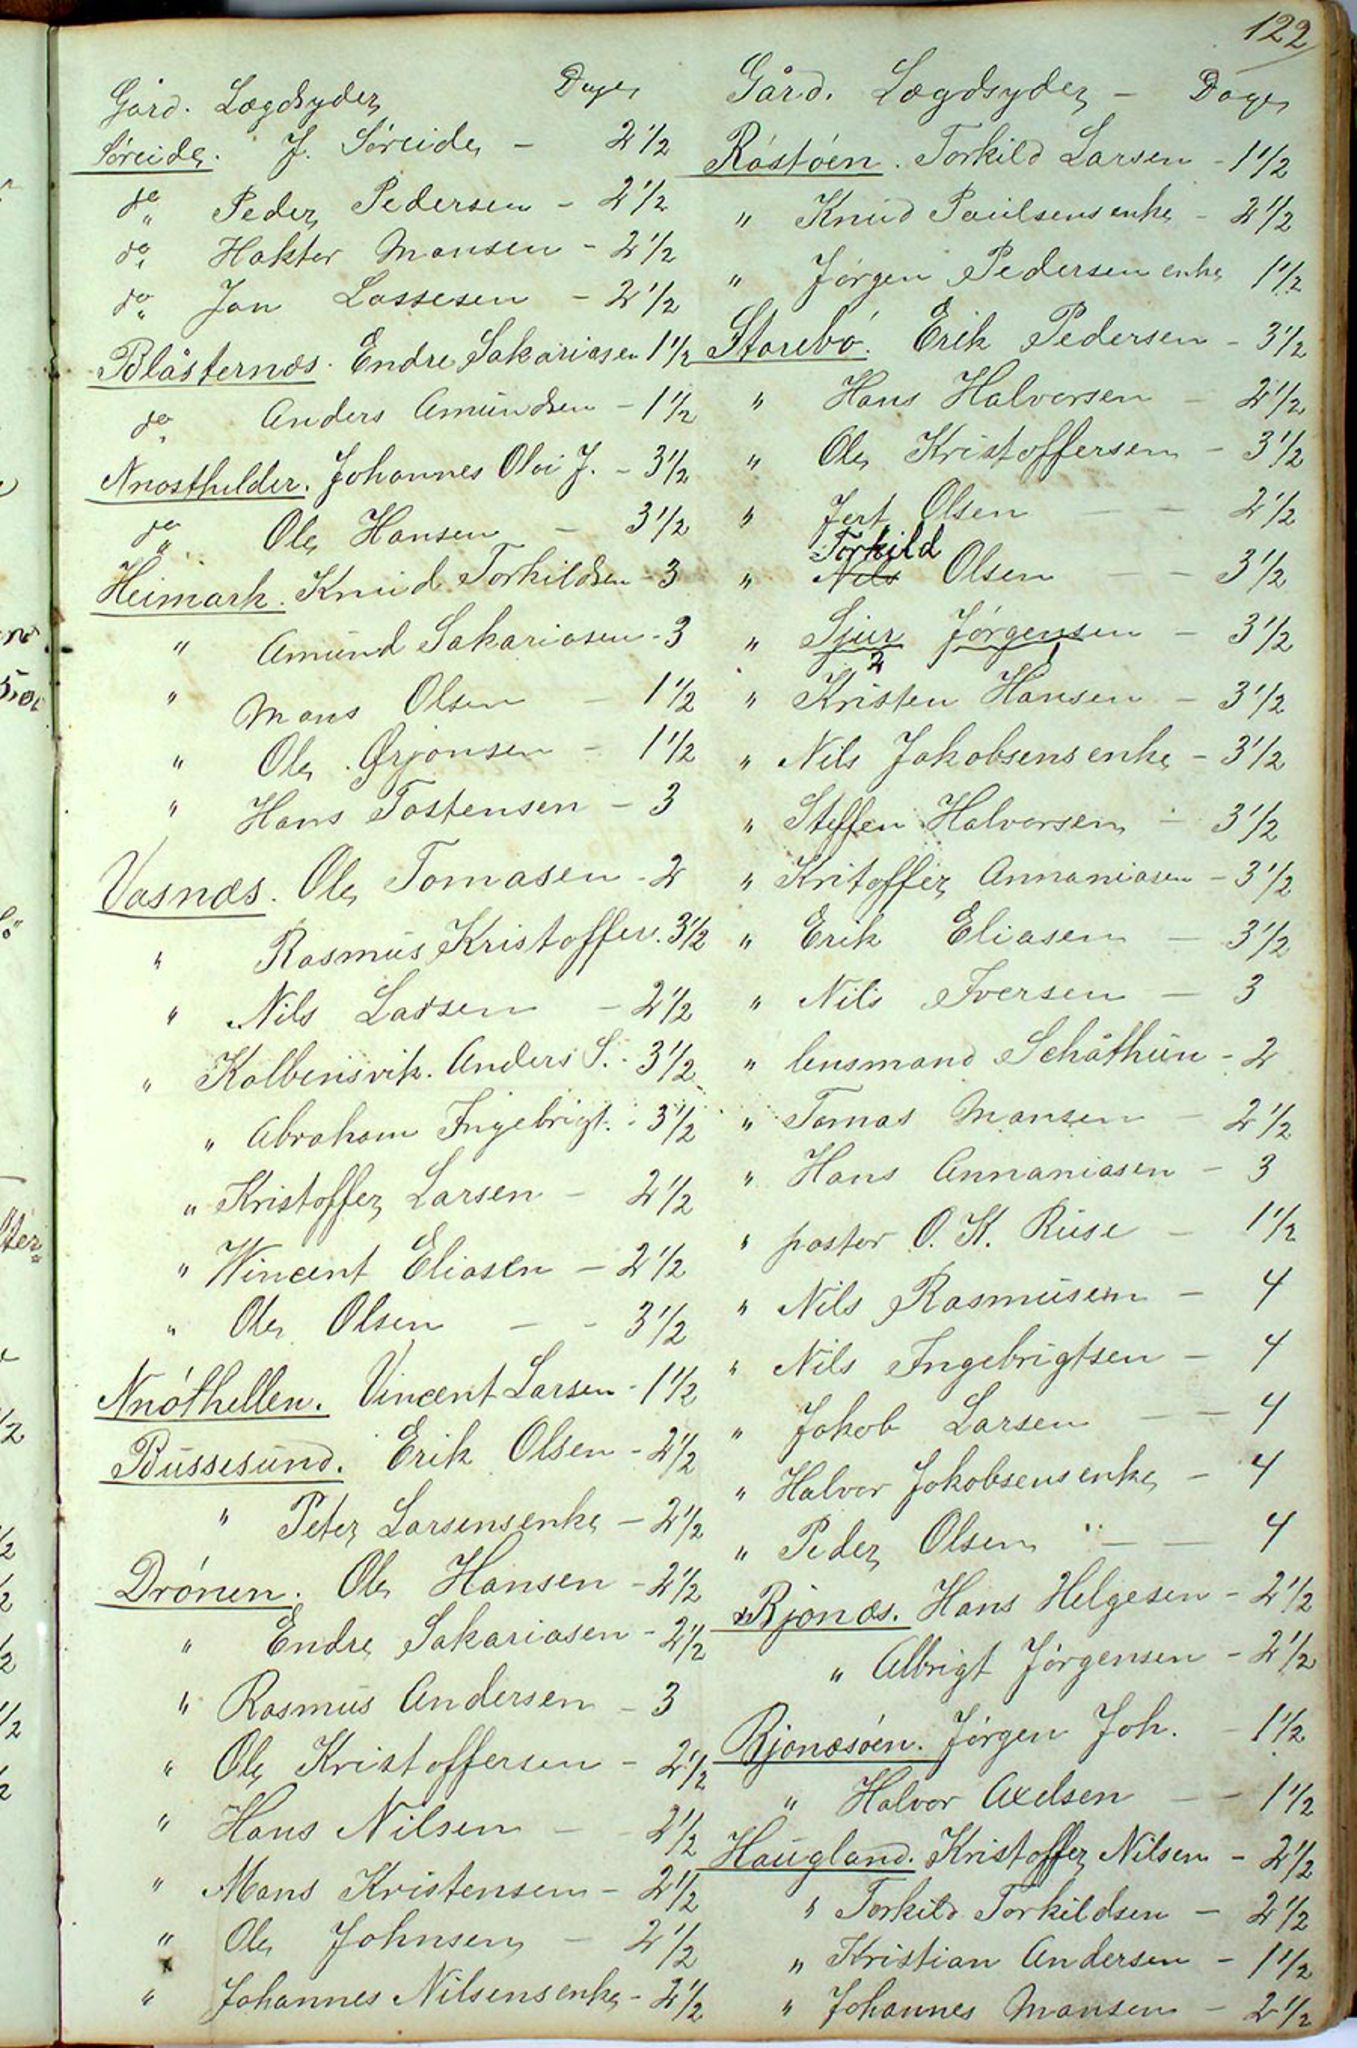 122
Gård. Lægdsyder Dage
Søreide. J. Søreide - 2 1/2
do " Peder Pedersen - 2 1/2
do " Haktor Monsen - 2 1/2
do " Jon Lassesen - 2 1/2
Blåsternæs. Endre Sakariasen 1 1/2
do " Anders Amundsen - 1 1/2
Nnosthilder. Johannes Olai J. - 3 1/2
do " Ole Hansen - 3 1/2
Heimark. Knud Torkildsen - 3
" Amund Sakariasen - 3
" Mons Olsen - 1 1/2
" Ole Ørjonsen - 1 1/2
" Hans Tostensen - 3
Vasnæs. Ole Tomasen - 2
" Rasmus Kristoffer. 3 1/2
" Nils Larsen - 2 1/2
" Kolbensvik. Anders S. - 3 1/2
" Abraham Ingebrigt. - 3 1/2
" Kristoffer Larsen - 2 1/2
" Wincent Eliasen - 2 1/2
" Ole Olsen - - 3 1/2
Nnóthellen. Vincent Larsen - 1 1/2
Bussesund. Erik Olsen - 2 1/2
" Peter Larsens enke - 2 1/2
Drónen. Ole Hansen - 2 1/2
" Endre Sakariasen - 2 1/2
" Rasmus Andersen - 3
" Ole Kristoffersen - 2 1/2
" Hans Nilsen - - 2 1/2
" Mons Kristensen - 2 1/2
" Ole Johnsen - 2 1/2
" Johannes Nilsens enke - 2 1/2
Gård. Lægdsyder - Dage
Róstóen. Torkild Larsen - 1 1/2
" Knud Paulsens enke - 2 1/2
" Jórgen Pedersen enke 1 1/2
Storebó. Erik Pedersen - 3 1/2
" Hans Halvorsen - 2 1/2
" Ole Kristoffersen - 3 1/2
" Jert Olsen - - 2 1/2
Torkild
" Nils Olsen - - 3 1/2
" Sjur Jórgensen - 3 1/2
2 1
" Kristen Hansen - 3 1/2
" Nils Jakobsens enke - 3 1/2
" Steffen Halvorsen - 3 1/2
" Kritoffer Annaniasen - 3 1/2
" Erik Eliasen - 3 1/2
" Nils Iversen - 3
" lensmand Schåthun - 2
" Tomas Monsen - 2 1/2
" Hans Annaniasen - 3
" pastor O. K. Ruse - 1 1/2
" Nils Rasmusen - 4
" Nils Ingebrigtsen - 4
" Jakob Larsen - - 4
" Halvor Jakobsens enke - 4
" Peder Olsen - - 4
Bjonæs. Hans Helgesen - 2 1/2
" Albrigt Jórgensen - 2 1/2
Bjonæsóen. Jórgen Joh. - 1 1/2
" Halvor Axelsen - - 1 1/2
Haugland. Kristoffer Nilsen - 2 1/2
" Torkild Torkildsen - 2 1/2
" Kristian Andersen - 1 1/2
" Johannes Monsen - 2 1/2